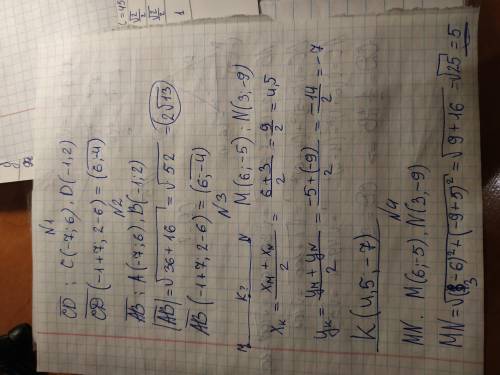 N1
CD : C(-7; 6), D(-1; 2)
CD (-1+7; 2-6) = (6; -4)
N2
AB : A(-7; 6), B(-1; 2)
|AB| = √36+16 = √52 = 2√13
AB (-1+7; 2-6) = (6; -4)
N3
M K? N M(6; -5) ; N(3; -9)
Xк = Xм + Xн / 2 = 6+3 / 2 = 9 / 2 = 4,5
Yк = Yм + Yн / 2 = -5+(-9) / 2 = -14 / 2 = -7
K (4,5; -7)
N4
MN. M(6; -5), N(3; -9)
MN = √(3-6)²+(-9+5)² = √9+16 = √25 = 5